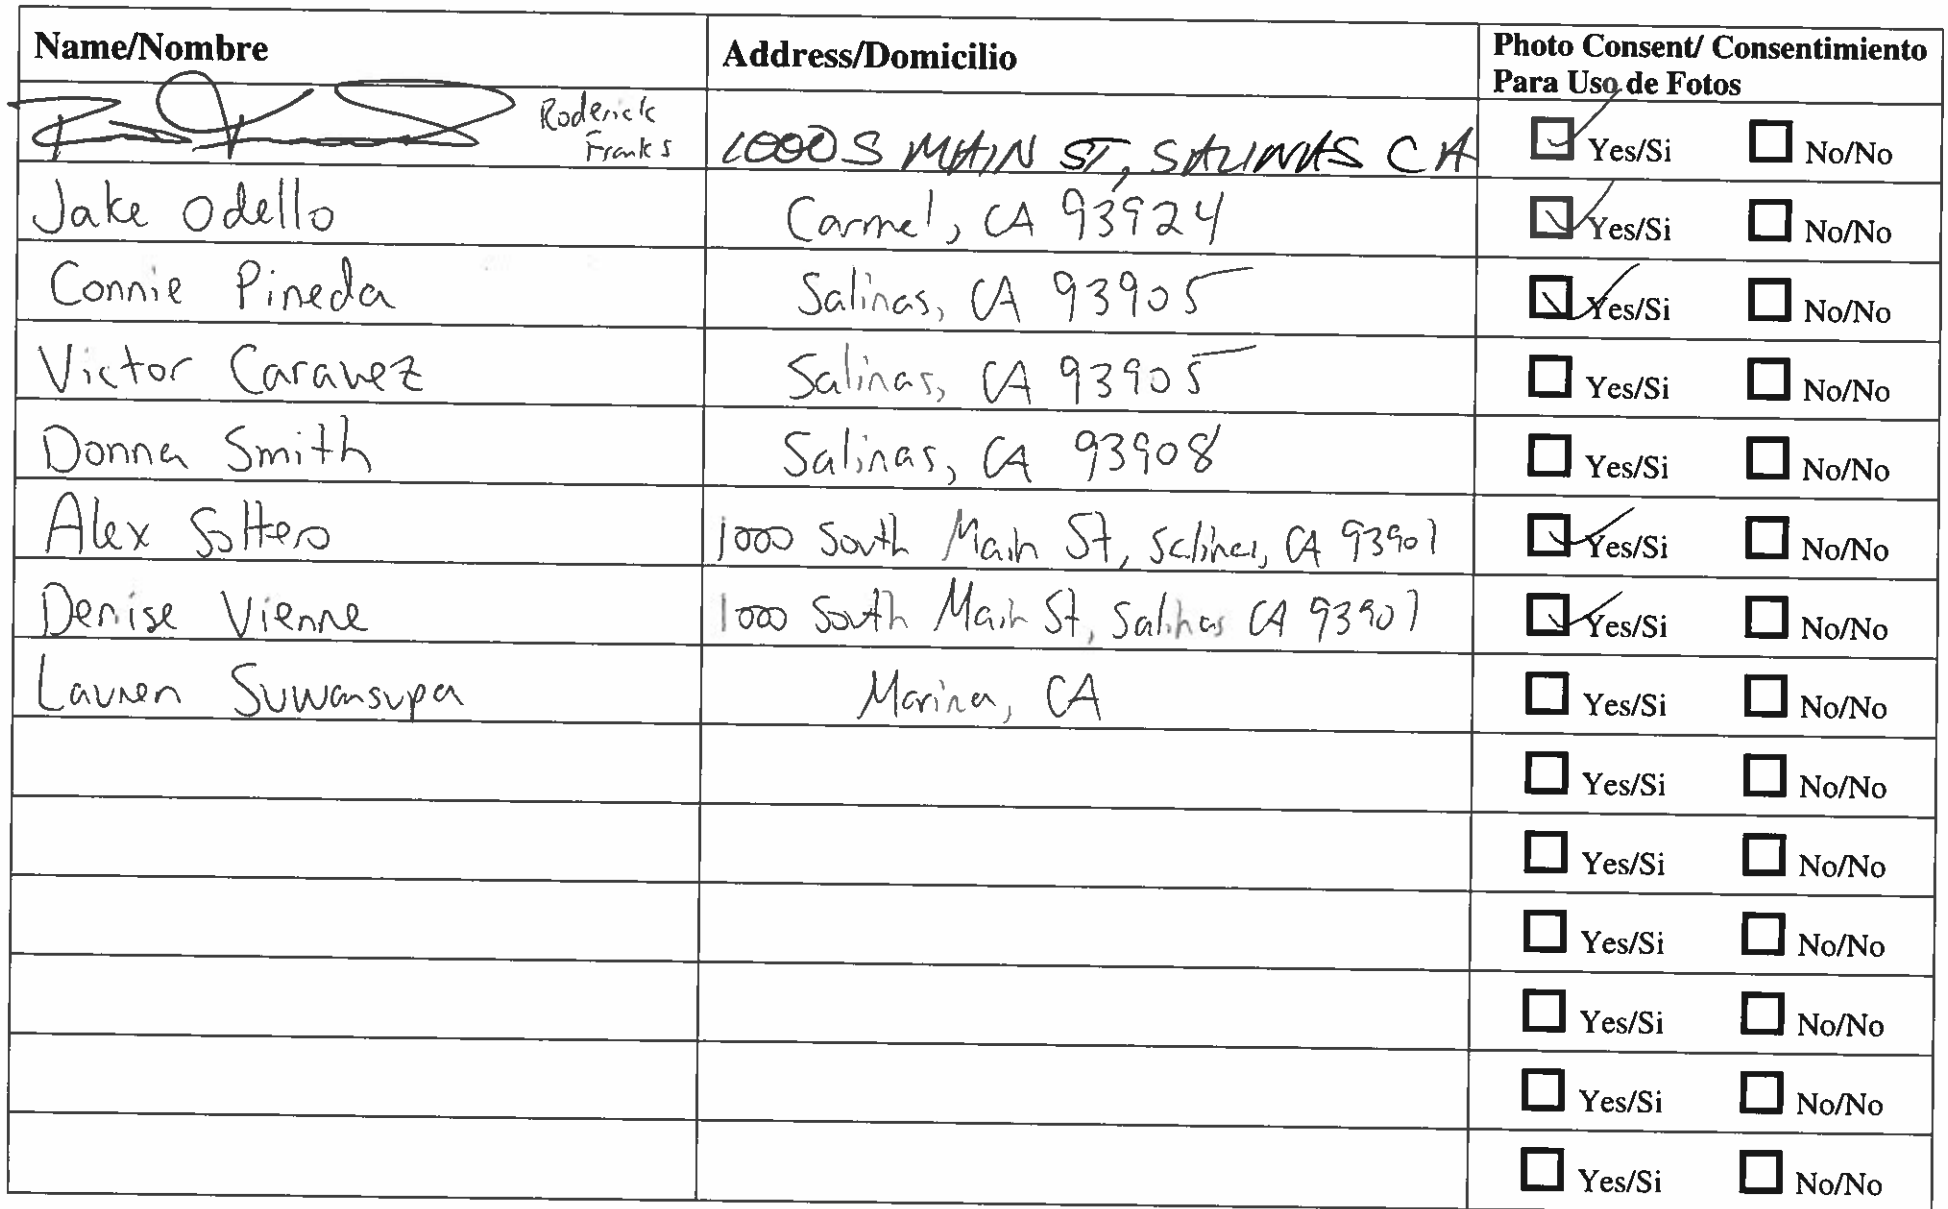 Name/Nombre Address/Domicilio Photo Consent/ Consentimiento
Para Uso de Fotos
Roderick
Franks 1000 S MAIN ST, SALINAS CA Yes/Si No/No
Jake Odello Carmel, CA 93924 Yes/Si No/No
Connie Pineda Salinas, CA 93905 Yes/Si No/No
Victor Caravez Salinas, CA 93905 Yes/Si No/No
Donna Smith Salinas, CA 93908 Yes/Si No/No
Alex Soltero 1000 South Main St, Salinas, CA 93901 Yes/Si No/No
Denise Vienne 1000 South Main St, Salinas CA 93901 Yes/Si No/No
Lauren Suwansupa Marina, CA Yes/Si No/No
Yes/Si No/No
Yes/Si No/No
Yes/Si No/No
Yes/Si No/No
Yes/Si No/No
Yes/Si No/No